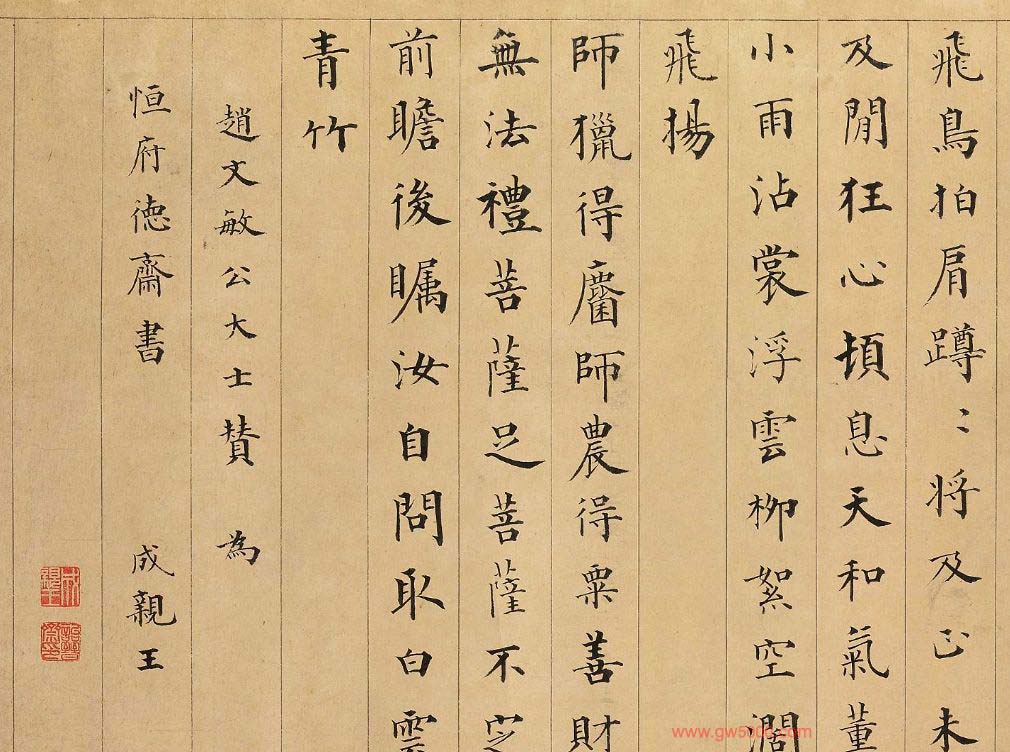 飛鳥拍肩蹲〻将及正未
及閒狂心頓息天和氣薰
小雨沾裳浮雲柳絮空闊
飛揚
師獵得麕師農得粟善財
無法禮菩薩足菩薩不定
前瞻後矚汝自問取白雲
青竹
趙文敏公大士賛 為
恒府德齋書 成親王